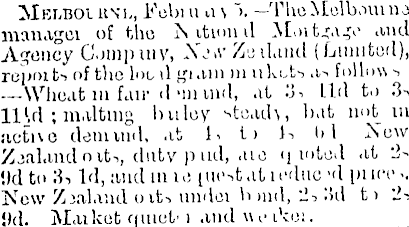 MELBOURNE, February 5.—The Melbourne
manager of the National Mortgage and
Agency Company, New Zealand (Limited),
reports of the local grain markets as follows
—Wheat in fair demand, at 3s 11d to 3s
11½d ; malting barley steady, but not in
active demand, at 4s to 4s 6d New
Zealand oats, duty paid, are quoted at 2s
9d to 3s 1d, and in request at reduced prices.
New Zealand oats under bond, 2s 3d to 2s
9d. Market quieter and weaker.